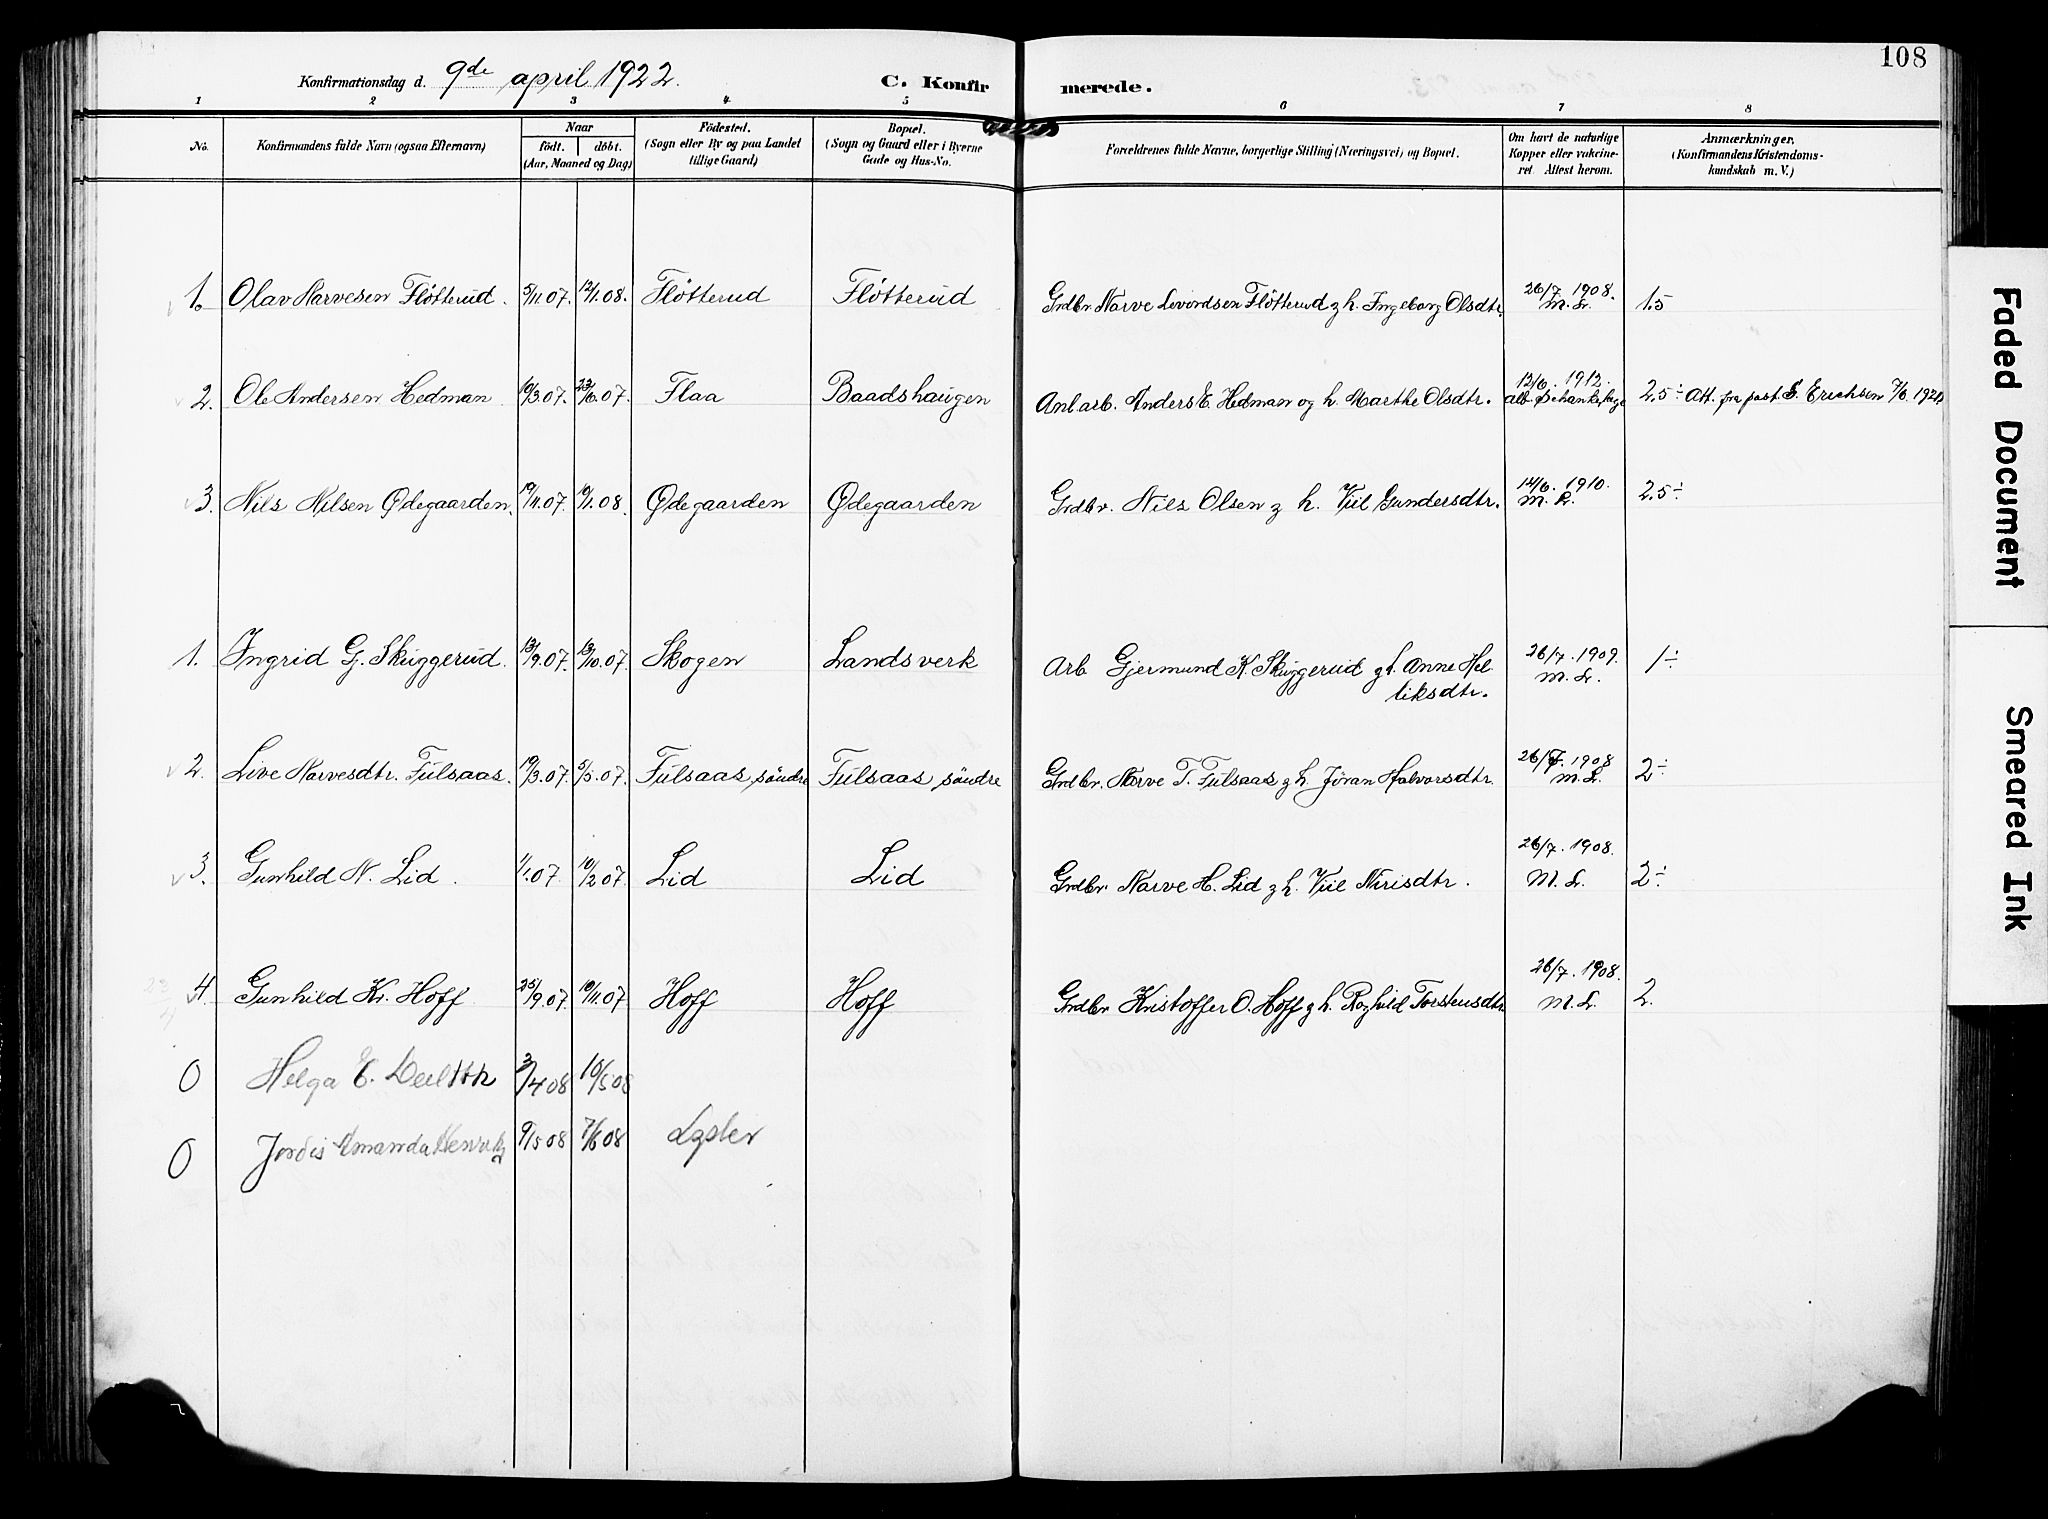 108
Konfirmationsdag d. 9de april 1922. C. Konfirmerede.
1 2 3 4 5 6 7 8
No. Konfirmandens fulde Navn (ogsaa Efternavn) Naar født. døbt. (Aar, Maaned og Dag) Fødested. (Sogn eller By og paa Landet tillige Gaard) Bopæl. (Sogn og Gaard eller i Byerne Gade og Hus-No. Forældrenes fulde Navne, borgerlige Stilling (Næringsvei) og Bopæl. Om havt de naturlige Kopper eller vakcineret. Attest herom. Anmærkninger. (Konfirmandens Kristendomskundskab m. V.)
1. Olav Narvesen Fløtterud. 5/11.07. 12/1.08. Fløtterud Fløtterud Grdbr. Narve Levordsen Fløtterud g h. Ingeborg Olsdtr. 26/7. 1908. M. L. 1.5
2. Ole Andersen Hedman 10/3.07. 23/6.07. Flaa Baadshaugen Anl.arb. Anders E. Hedman og h. Marthe Olsdtr. 12/6. 1912. 2.5 ÷ Att. fra past. S. Erichsen 7/6.
3. Nils Nilsen Ødegaarden. 19/11.07. 10/1.08. Ødegaarden Ødegaarden Grdbr. Nils Olsen g h. Viil Gundersdtr. 14/6. 1910. M. R. 2.5 ÷
1. Ingrid G. Skuggerud. 13/9.07. 13/10.07. Skogen Landsverk Arb. Gjermund K. Skuggerud g h. Anne Hel-
liksdtr. 26/7. 1909. M. L. 1 ÷
2. Live Narvesdtr. Fulsaas. 19/3.07. 5/5.07. Fulsaas, søndre Fulsaas, søndre Grdbr. Narve T. Fulsaas g h. Jøran Halvorsdtr. 26/7. 1908 M. L. 2 ÷
3. Gunhild N. Lid. 1/1.07. 10/2.07. Lid Lid Grdbr. Narve H. Lid g h. Viil Nirisdtr. 26/7. 1908. M. L. 2 ÷
4. Gunhild Kr. Hoff 25/9.07. 10/11.07 Hoff Hoff Grdbr. Kristoffer O. Hoff g h. Roghild Torstensdtr. 26/7. 1908. M. L. 2.
0 Helga E. 3/4 08 10/5 08
0 Jordis Amanda 9/5 08 7/6 08
Faded Document
Smeared Ink